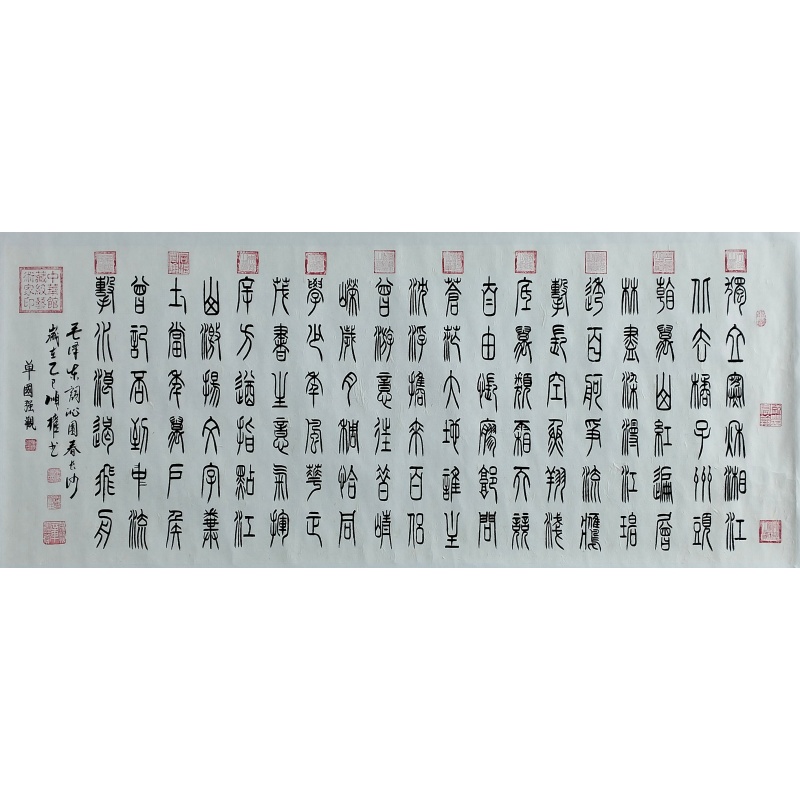 獨立寒秋湘江
北去橘子洲頭
看萬山紅遍層
林盡染漫江碧
透百舸爭流鷹
擊長空魚翔淺
底萬類霜天競
自由悵寥廓問
蒼茫大地誰主
沈浮攜來百侶
曾游意往昔崢
嶸歲月稠恰同
學少年風華正
茂書生意氣揮
斥方遒指點江
山激揚文字糞
土當年萬戶侯
曾記否到中流
擊水浪遏飛舟
毛澤东詞沁園春長沙
歲在乙巳權书
單國强觀
中華館藏級藝術家印